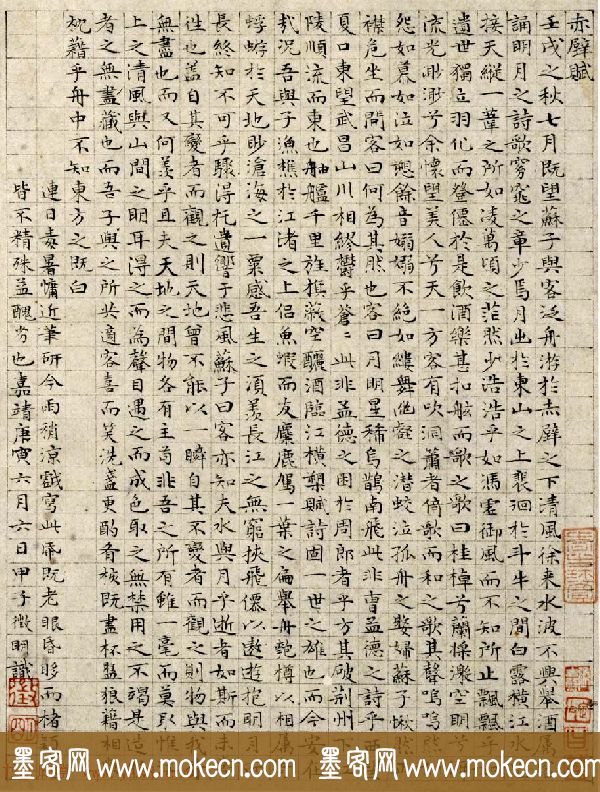 赤壁賦
壬戌之秋七月既望蘇子與客泛舟游於赤壁之下清風徐來水波不興舉酒屬
誦明月之詩歌窈窕之章少焉月出於東山之上裴徊於斗牛之間白露橫江水
接天縱一葦之所如凌萬頃之茫然少浩浩乎如馮虛御風而不知所止飄飄乎
遺世獨立羽化而登僊於是飲酒樂甚扣舷而歌之歌曰桂棹兮蘭槳擊空明兮
流光渺渺兮余懷望美人兮天一方客有吹洞蕭者倚歌而和之其聲嗚嗚然
怨如慕如泣如愬餘音嫋嫋不絕如縷舞幽壑之潛蛟泣孤舟之嫠婦蘇子愀然
襟危坐而問客曰何為其然也客曰月明星稀烏鵲南飛此非曹孟德之詩乎西
夏口東望武昌山川相繆鬱乎蒼〻此非孟德之困於周郎者乎方其破荊州下
陵順流而東也舳艫千里旌旗蔽空釃酒臨江橫槊賦詩固一世之雄也而今安在
哉況吾與子漁樵於江渚之上侶魚蝦而友麋鹿駕一葉之扁舉匏樽以相屬
蜉蝣於天地眇滄海之一粟感吾生之須羨長江之無窮挾飛僊以遨遊抱明月
長終知不可乎驟得托遺響于悲風蘇子曰客亦知夫水與月乎逝者如斯而未
往也蓋自其變者而觀之則天地曾不能以一瞬自其不變者而觀之則物與我
無盡也而又何羨乎且夫天地之間物各有主苟非吾之所有雖一毫而莫取惟
上之清風與山間之明耳得之而為聲目遇之而成色取之無禁用之不竭是造
者之無盡藏也而吾子與之所共適客喜而笑洗盞更酌肴核既盡杯盤狼藉相
枕藉乎舟中不知東方之既白
連日毒暑慵近筆研今雨稍涼戲寫此冊既老眼昏眵而楮
皆不精殊益醜劣也嘉靖庚寅六月六日甲子徵明識
徵
明
墨客网 www.mokecn.com 墨客网 www.mokecn.com